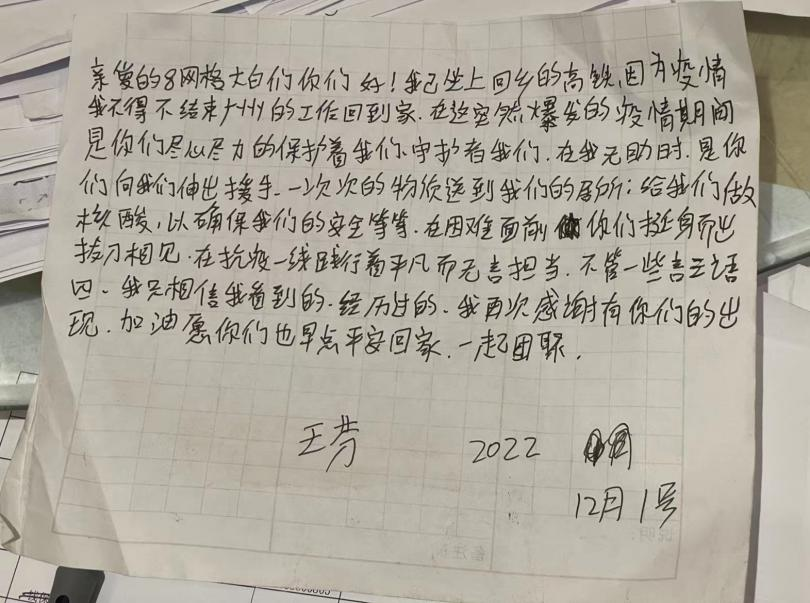 亲爱的8网格大白们你们好！我已坐上回乡的高铁,因为疫情
我不得不结束广州的工作回到家.在这突然爆发的疫情期间
是你们尽心尽力的保护着我们.守护者我们.在我无助时.是你
们向我们伸出援手.一次次的物质送到我们的居所;给我们做
核酸,以确保我们的安全等等.在困难面前你们挺身而出
拔刀相见.在抗疫一线践行着平凡而无言担当.不管一些言三语
四.我只相信我看到的.经历过的.我再次感谢有你们的出
现.加油愿你们也早点平安回家.一起团聚.
王芳 2022
12月1号
说明:
备注